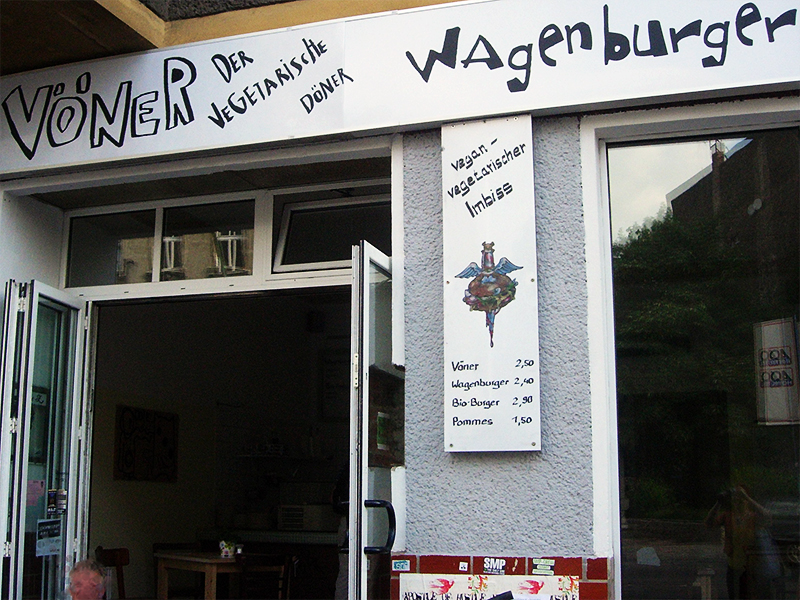 VÖNER
DER
VEGETARISCHE
DÖNER
Wagenburger
vegan-
vegetarischer
Imbiss
Vöner 2,50
Wagenburger 2,40
Bio-Burger 2,90
Pommes 1,50
SMP